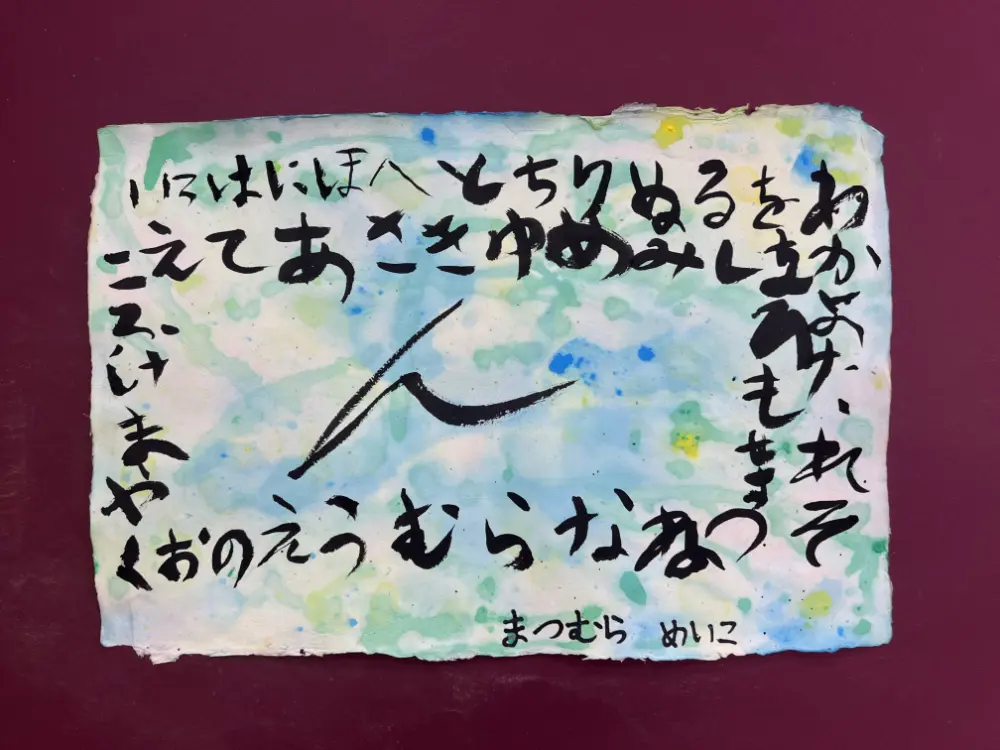 いろはにほへとちりぬるを
わかよたれそ
つねならむうえのおく
やまけふこ
えてあさきゆめみし
ゑひもせす
ん
まつむら めいこ